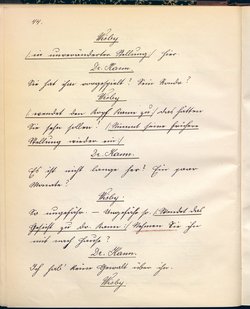 44.
Wisby
(in unveränderter Stellung) hier.
Dr. Kann.
Sie hat ihn vorgespielt? Sein Kunde?
Wisby
(wendet den Kopf Kann zu) das hätten
Sie sehn sollen. (Nimmt seine frühere
Stellung wieder ein)
Dr. Kann.
Es ist nicht lange her? Ein paar
Monate?
Wisby.
So ungefähr. – Ungefähr so. (Wendet das
Gesicht zu Dr. Kann) Nehmen Sie ihn
mit nach Hause?
Dr. Kann.
Ich hab' keine Gewalt über ihn.
Wisby